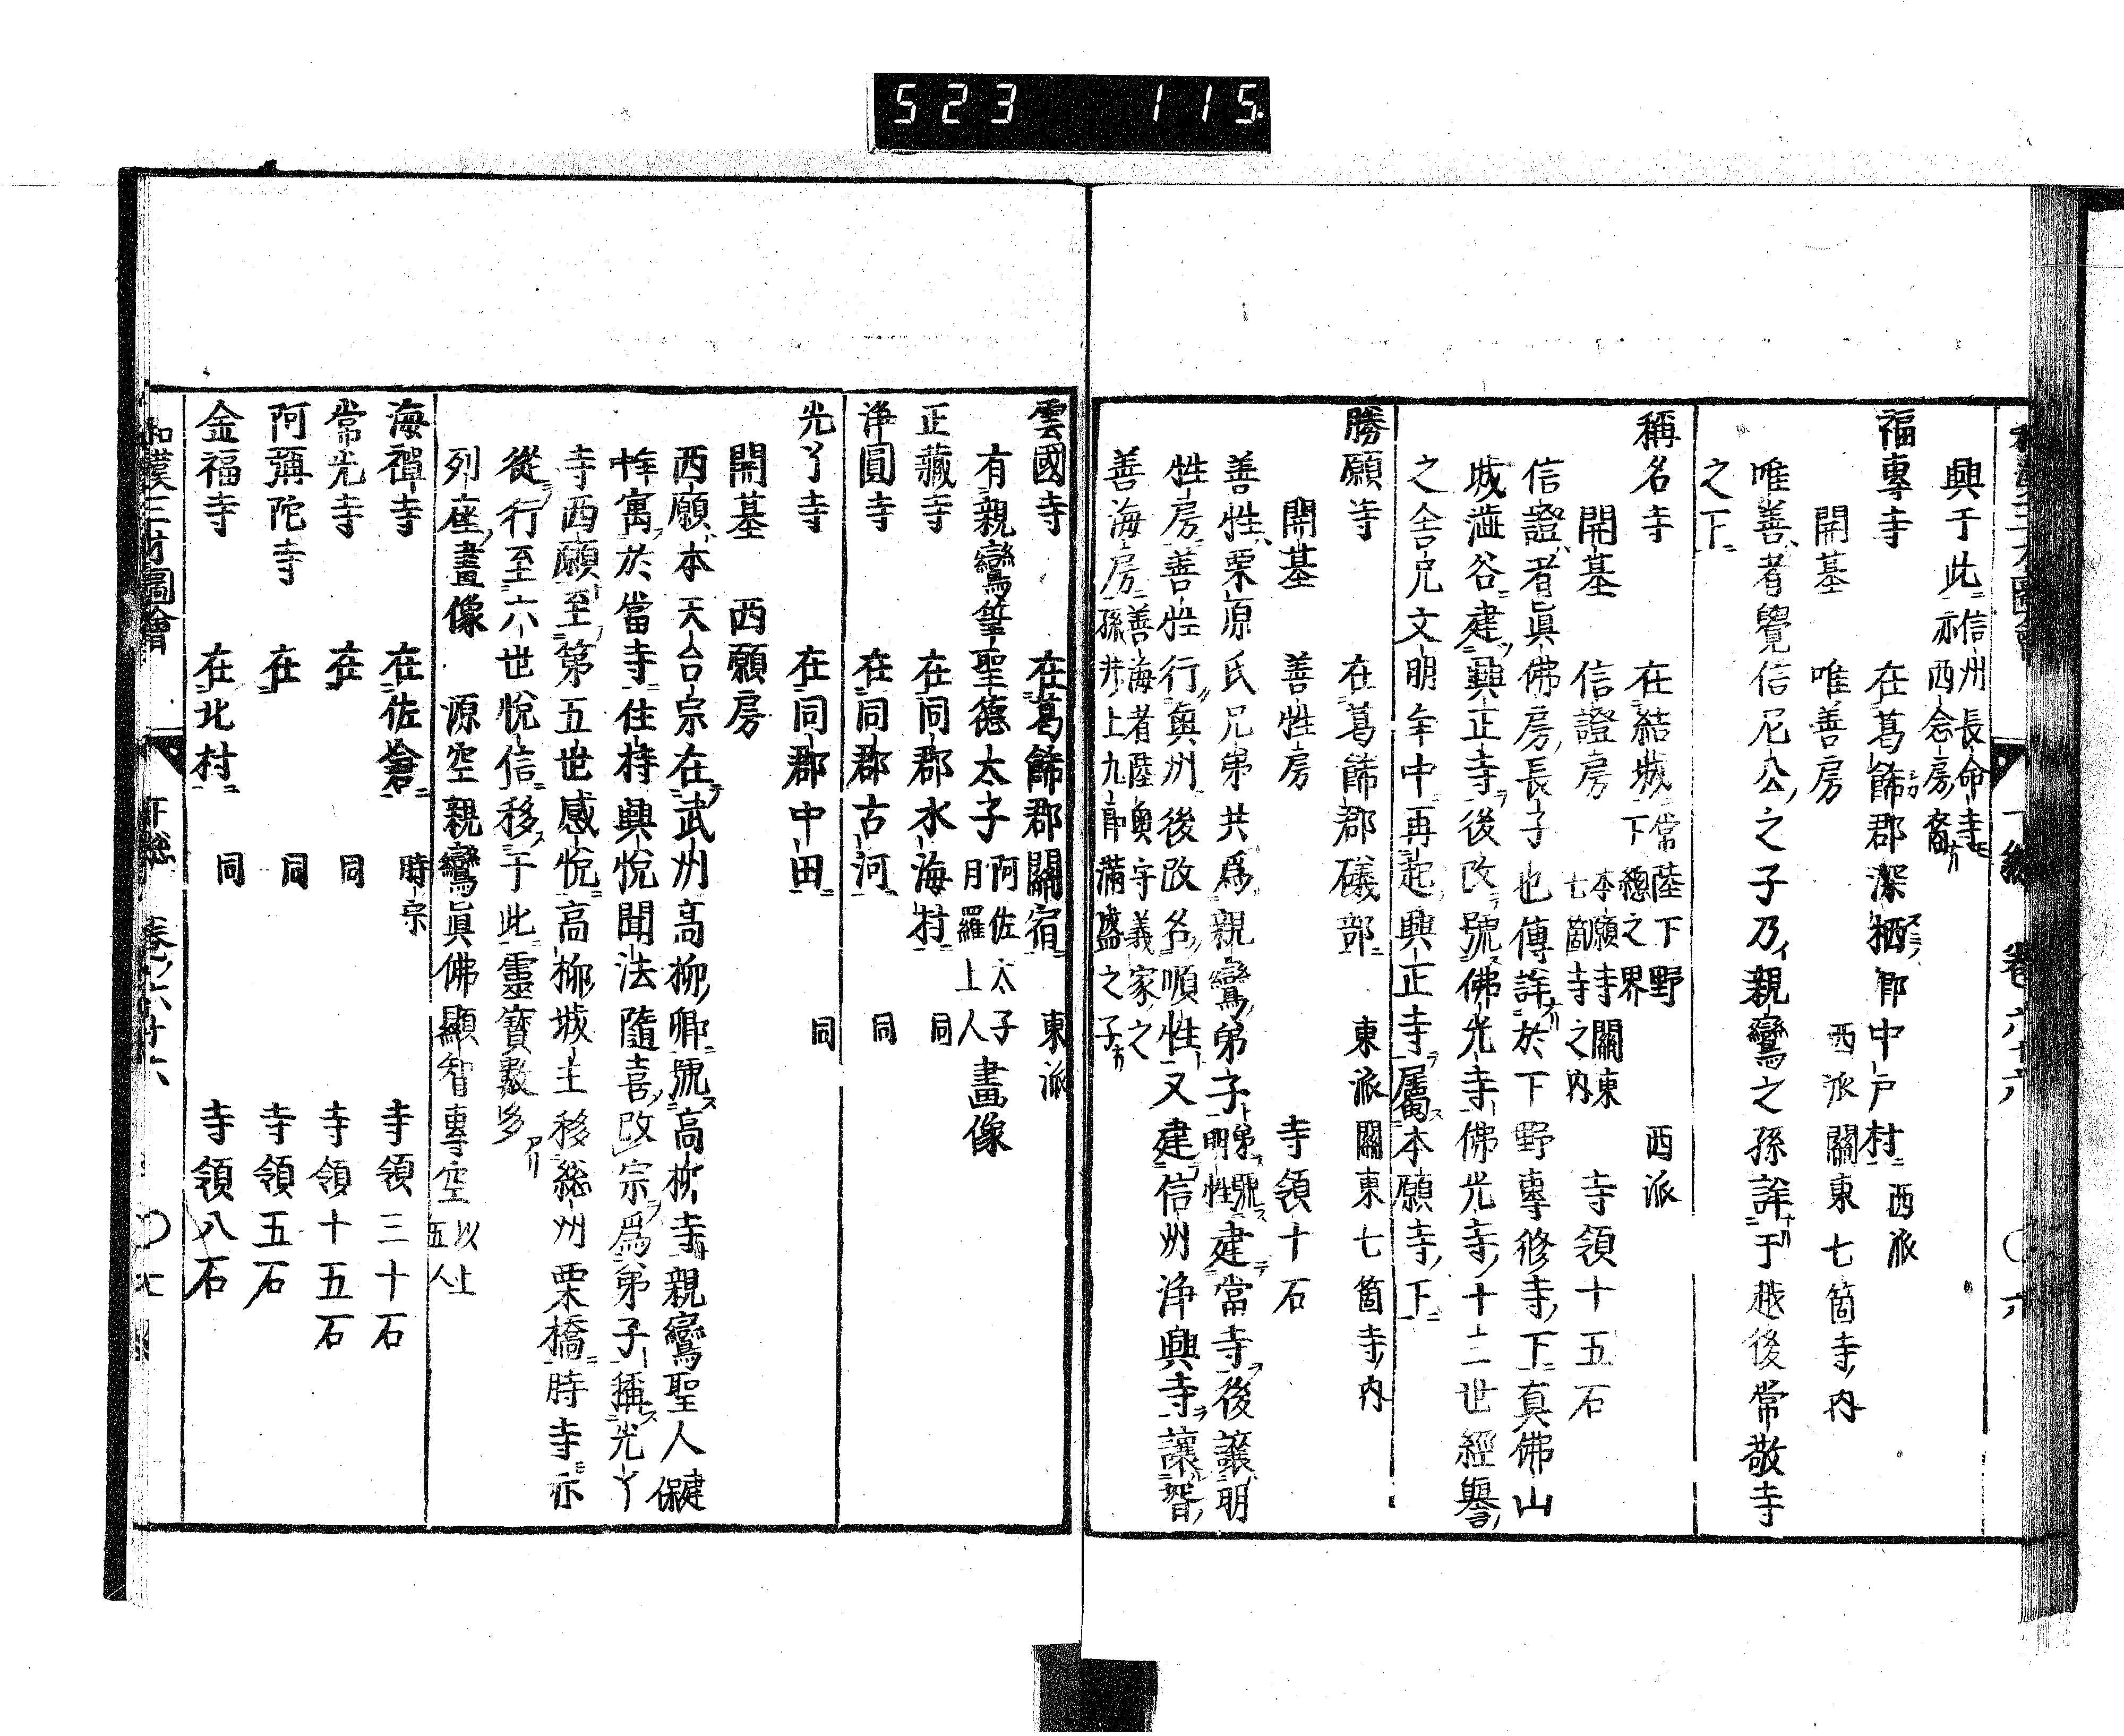 523 115
興于此信州長命寺
亦西念房裔
福專寺 在葛餝郡深栖郷中戸村 西派
開基 唯善房 西派關東七箇寺内
唯善者覺信尼公之子乃親鸞之孫詳于越後常敬寺
之下
稱名寺 在結城常陸下野 西派
下總之界
開基 信證房 本願寺關東 寺領十五石
七箇寺之内
信證者眞佛房長子也傳詳於下野專修寺下真佛山
城澁谷建興正寺後改號佛光寺佛光寺十二世經譽
之舎兄文明年中再起興正寺屬本願寺下
勝願寺 在葛餝郡礒部 東派關東七箇寺内
開基 善性房 寺領十石
善性栗原氏兄弟共爲親鸞弟子弟號明性建當寺後讓明
性房善性行奥州後改名順性又建信州浄興寺讓聟
善海房善海者陸奥守義家之
孫井上九郎滿盛之子
雲國寺 在葛餝郡關宿 東派
有親鸞筆聖德太子阿佐太子
月羅上人畫像
正藏寺 在同郡水海村 同
淨圓寺 在同郡古河 同
光了寺 在同郡中田 同
開基 西願房
西願本天台宗在武州高柳卿號高栁寺親鸞聖人建保
年寓於當寺住持興悦聞法隨喜改宗爲弟子稱光了
寺西願至第五世感悦高柳城主移総州栗橋時寺亦
從行至六世悦信移于此靈寶數多
列座畫像 源空親鸞眞佛顯智專空以上
五人
海禪寺 在佐倉 時宗 寺領三十石
常光寺 在 同 寺領十五石
阿彌陀寺 在 同 寺領五石
金福寺 在北村 同 寺領八石
和漢三才圖會 下総 卷之六十六 〇七